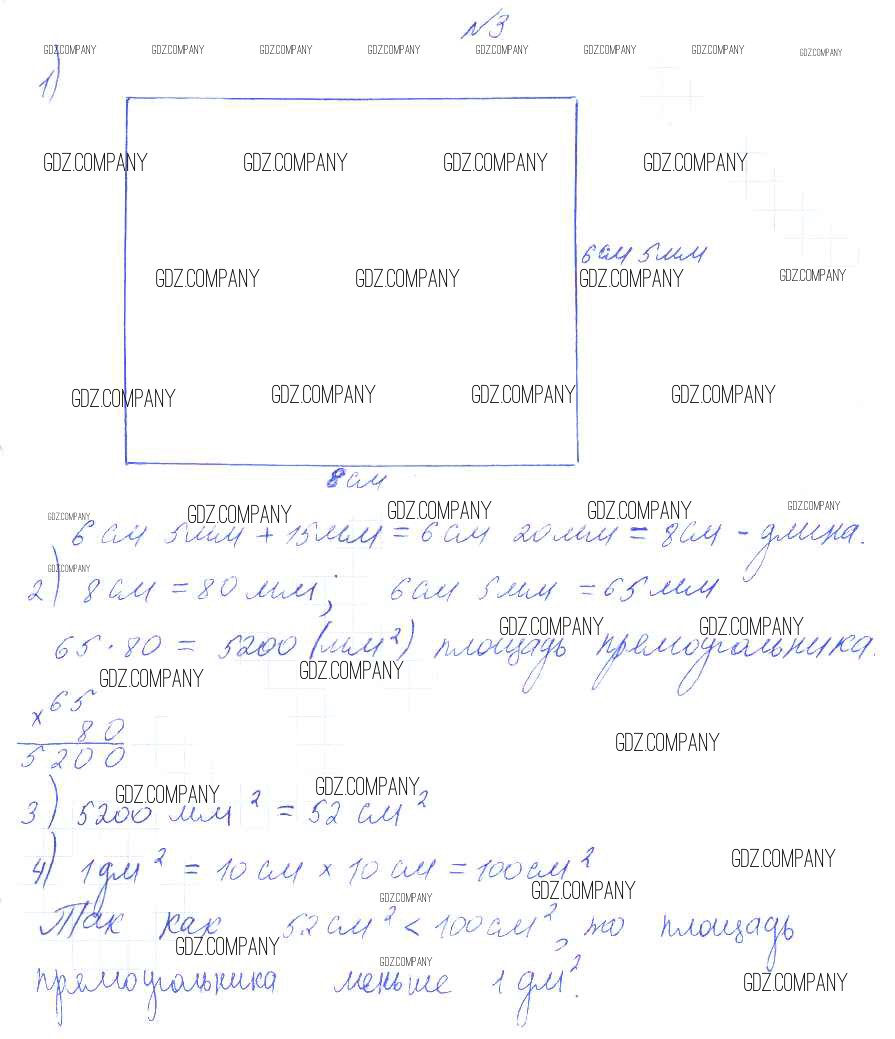 №3
GDZ.COMPANY GDZ.COMPANY GDZ.COMPANY GDZ.COMPANY GDZ.COMPANY GDZ.COMPANY GDZ.COMPANY GDZ.COMPANY
1)
GDZ.COMPANY GDZ.COMPANY GDZ.COMPANY GDZ.COMPANY
6см 5мм
GDZ.COMPANY GDZ.COMPANY GDZ.COMPANY GDZ.COMPANY
GDZ.COMPANY GDZ.COMPANY GDZ.COMPANY GDZ.COMPANY
8см
GDZ.COMPANY GDZ.COMPANY GDZ.COMPANY GDZ.COMPANY GDZ.COMPANY
6 см 5мм + 15мм = 6 см 20мм = 8см - длина.
GDZ.COMPANY
2) 8 см = 80 мм; 6см 5 мм = 65 мм
GDZ.COMPANY GDZ.COMPANY
65 · 80 = 5200 (мм²) площадь прямоугольника.
GDZ.COMPANY GDZ.COMPANY
× 65
80
GDZ.COMPANY
5200
GDZ.COMPANY GDZ.COMPANY
3) 5200 мм² = 52 см²
GDZ.COMPANY
4) 1 дм² = 10 см × 10 см = 100см²
GDZ.COMPANY GDZ.COMPANY
Так как 52 см² < 100см², то площадь
GDZ.COMPANY GDZ.COMPANY
прямоугольника меньше 1 дм².
GDZ.COMPANY